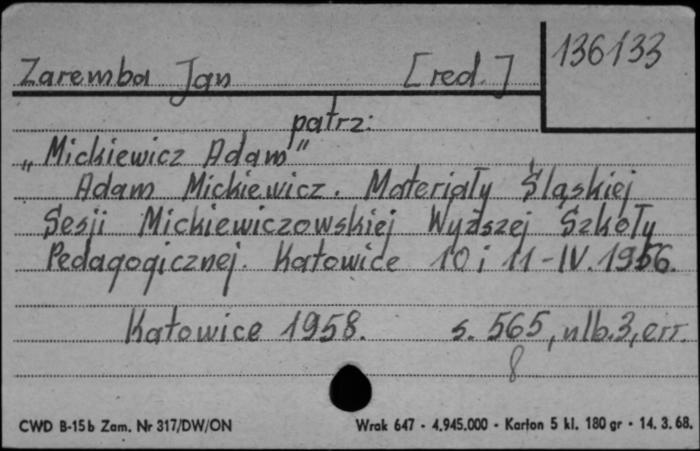 136133
Zaremba Jan [red.]
patrz:
„Mickiewicz Adam"
Adam Mickiewicz. Materiały Śląskiej
Sesji Mickiewiczowskiej Wyższej Szkoły
Pedagogicznej. Katowice 10 i 11-IV.1956.
Katowice 1958. s. 565, nlb.3, err.
8
CWD B-15b Zam. Nr 317/DW/ON Wrak 647 - 4.945.000 - Karton 5 kl. 180 gr - 14. 3. 68.